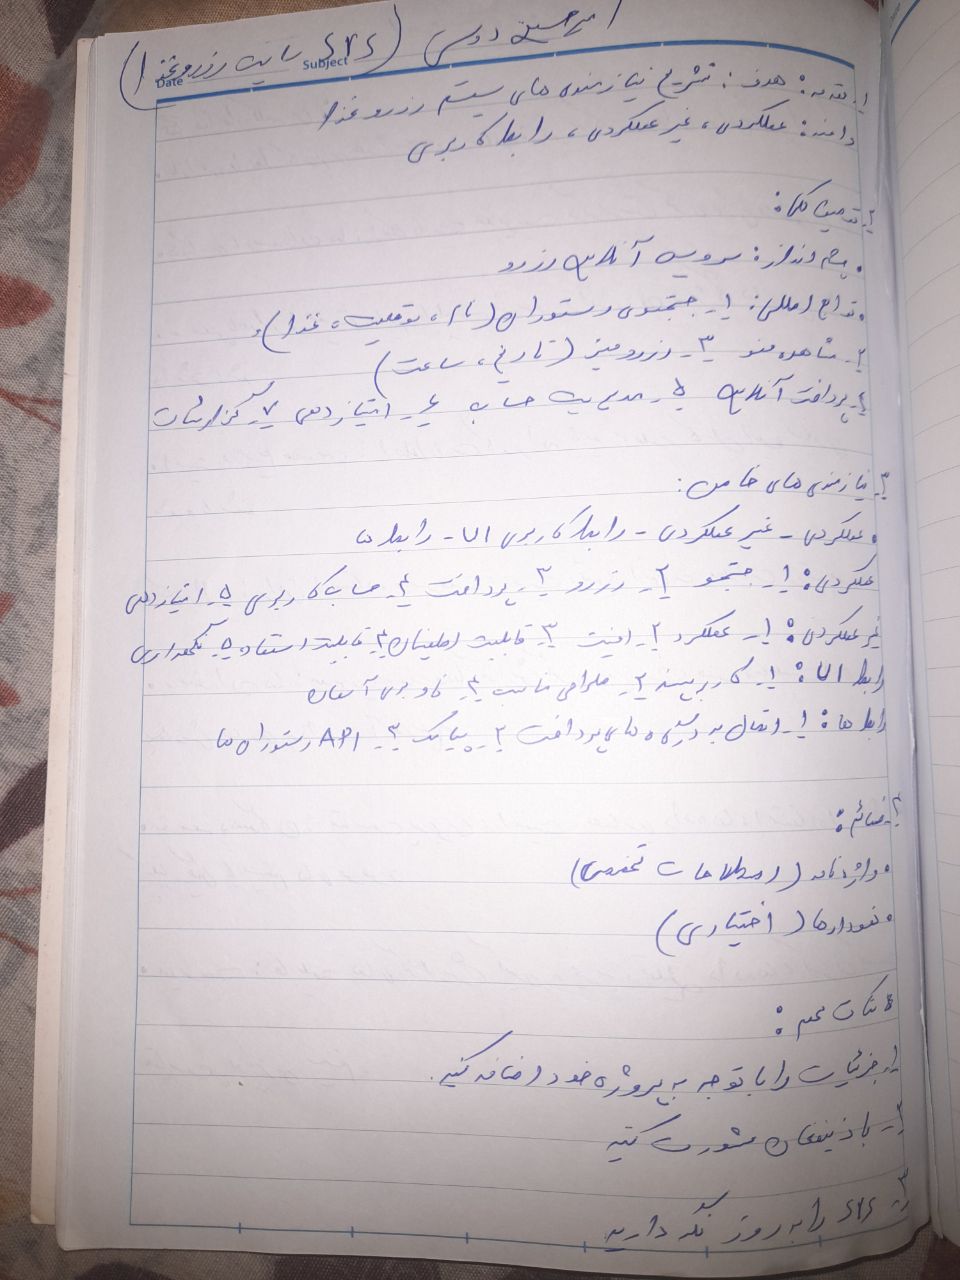 امیرحسین دوس (SRS سایت رزرو غذا)
Subject
Date
۱. مقدمه: هدف: تشریح نیازمندی های سیستم رزرو غذا
دامنه: عملکردی، غیر عملکردی، رابط کاربری
۲. توصیف کلی:
• چشم انداز: سرویس آنلاین رزرو
• توابع اصلی: ۱- جستجوی رستوران (نام، موقعیت، غذا)،
۲- مشاهده منو ۳- رزرو میز (تاریخ، ساعت)
۴- پرداخت آنلاین ۵- مدیریت حساب ۶- امتیازدهی ۷- گزارشات
۳. نیازمندی های خاص:
• عملکردی - غیر عملکردی - رابط کاربری UI - رابط ها
عملکردی: ۱- جستجو ۲- رزرو ۳- پرداخت ۴- حساب کاربری ۵- امتیازدهی
غیر عملکردی: ۱- عملکرد ۲- امنیت ۳- قابلیت اطمینان ۴- قابلیت استفاده ۵- نگهداری
رابط UI: ۱- کاربرپسند ۲- طراحی مناسب ۳- ناوبری آسان
رابط ها: ۱- اتصال به سیستم های پرداخت ۲- پیامک ۳- API رستوران ها
۴- ضمائم:
• واژه نامه (اصطلاحات تخصصی)
• نمودارها (اختیاری)
۵ نکات مهم:
۱- جزئیات را با توجه به پروژه خود اضافه کنید.
۲- با ذینفعان مشورت کنید
۳- SRS را به روز نگه دارید